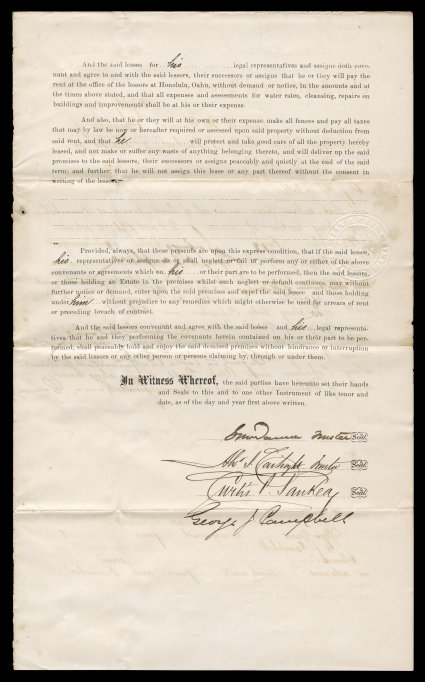 And the said lessee for his legal representatives and assigns doth cove-
nant and agree to and with the said lessors, their successors or assigns that he or they will pay the
rent at the office of the lessors at Honolulu, Oahu, without demand or notice, in the amounts and at
the times above stated, and that all expenses and assessments for water rates, cleansing, repairs on
buildings and improvements shall be at his or their expense.
And also, that he or they will at his own or their expense make all fences and pay all taxes
that may by law be now or hereafter required or assessed upon said property without deduction from
said rent, and that he will protect and take good care of all the property hereby
leased, and not make or suffer any waste of anything belonging thereto, and will deliver up the said
premises to the said lessors, their successors or assigns peaceably and quietly at the end of the said
term; and further, that he will not assign this lease or any part thereof without the consent in
writing of the lessors
Provided, always, that these presents are upon this express condition, that if the said lessee,
his representatives or assigns do or shall neglect or fail to perform any or either of the above
convenants or agreements which on his or their part are to be performed, then the said lessors,
or those holding an Estate in the premises whilst such neglect or default continues, may without
further notice or demand, enter upon the said premises and expel the said lessee and those holding
under him without prejudice to any remedies which might otherwise be used for arrears of rent
or preceding breach of contract.
And the said lessors convenant and agree with the said lessee and his legal representa-
tives that he and they performing the covenants herein contained on his or their part to be per-
formed, shall peaceably hold and enjoy the said demised premises without hindrance or interruption
by the said lessors or any other person or persons claiming by, through or under them.
In Witness Whereof, the said parties have hereunto set their hands
and Seals to this and to one other Instrument of like tenor and
date, as of the day and year first above written.
Trustee Seal
Seal
Curtis Seal
George J Campbell